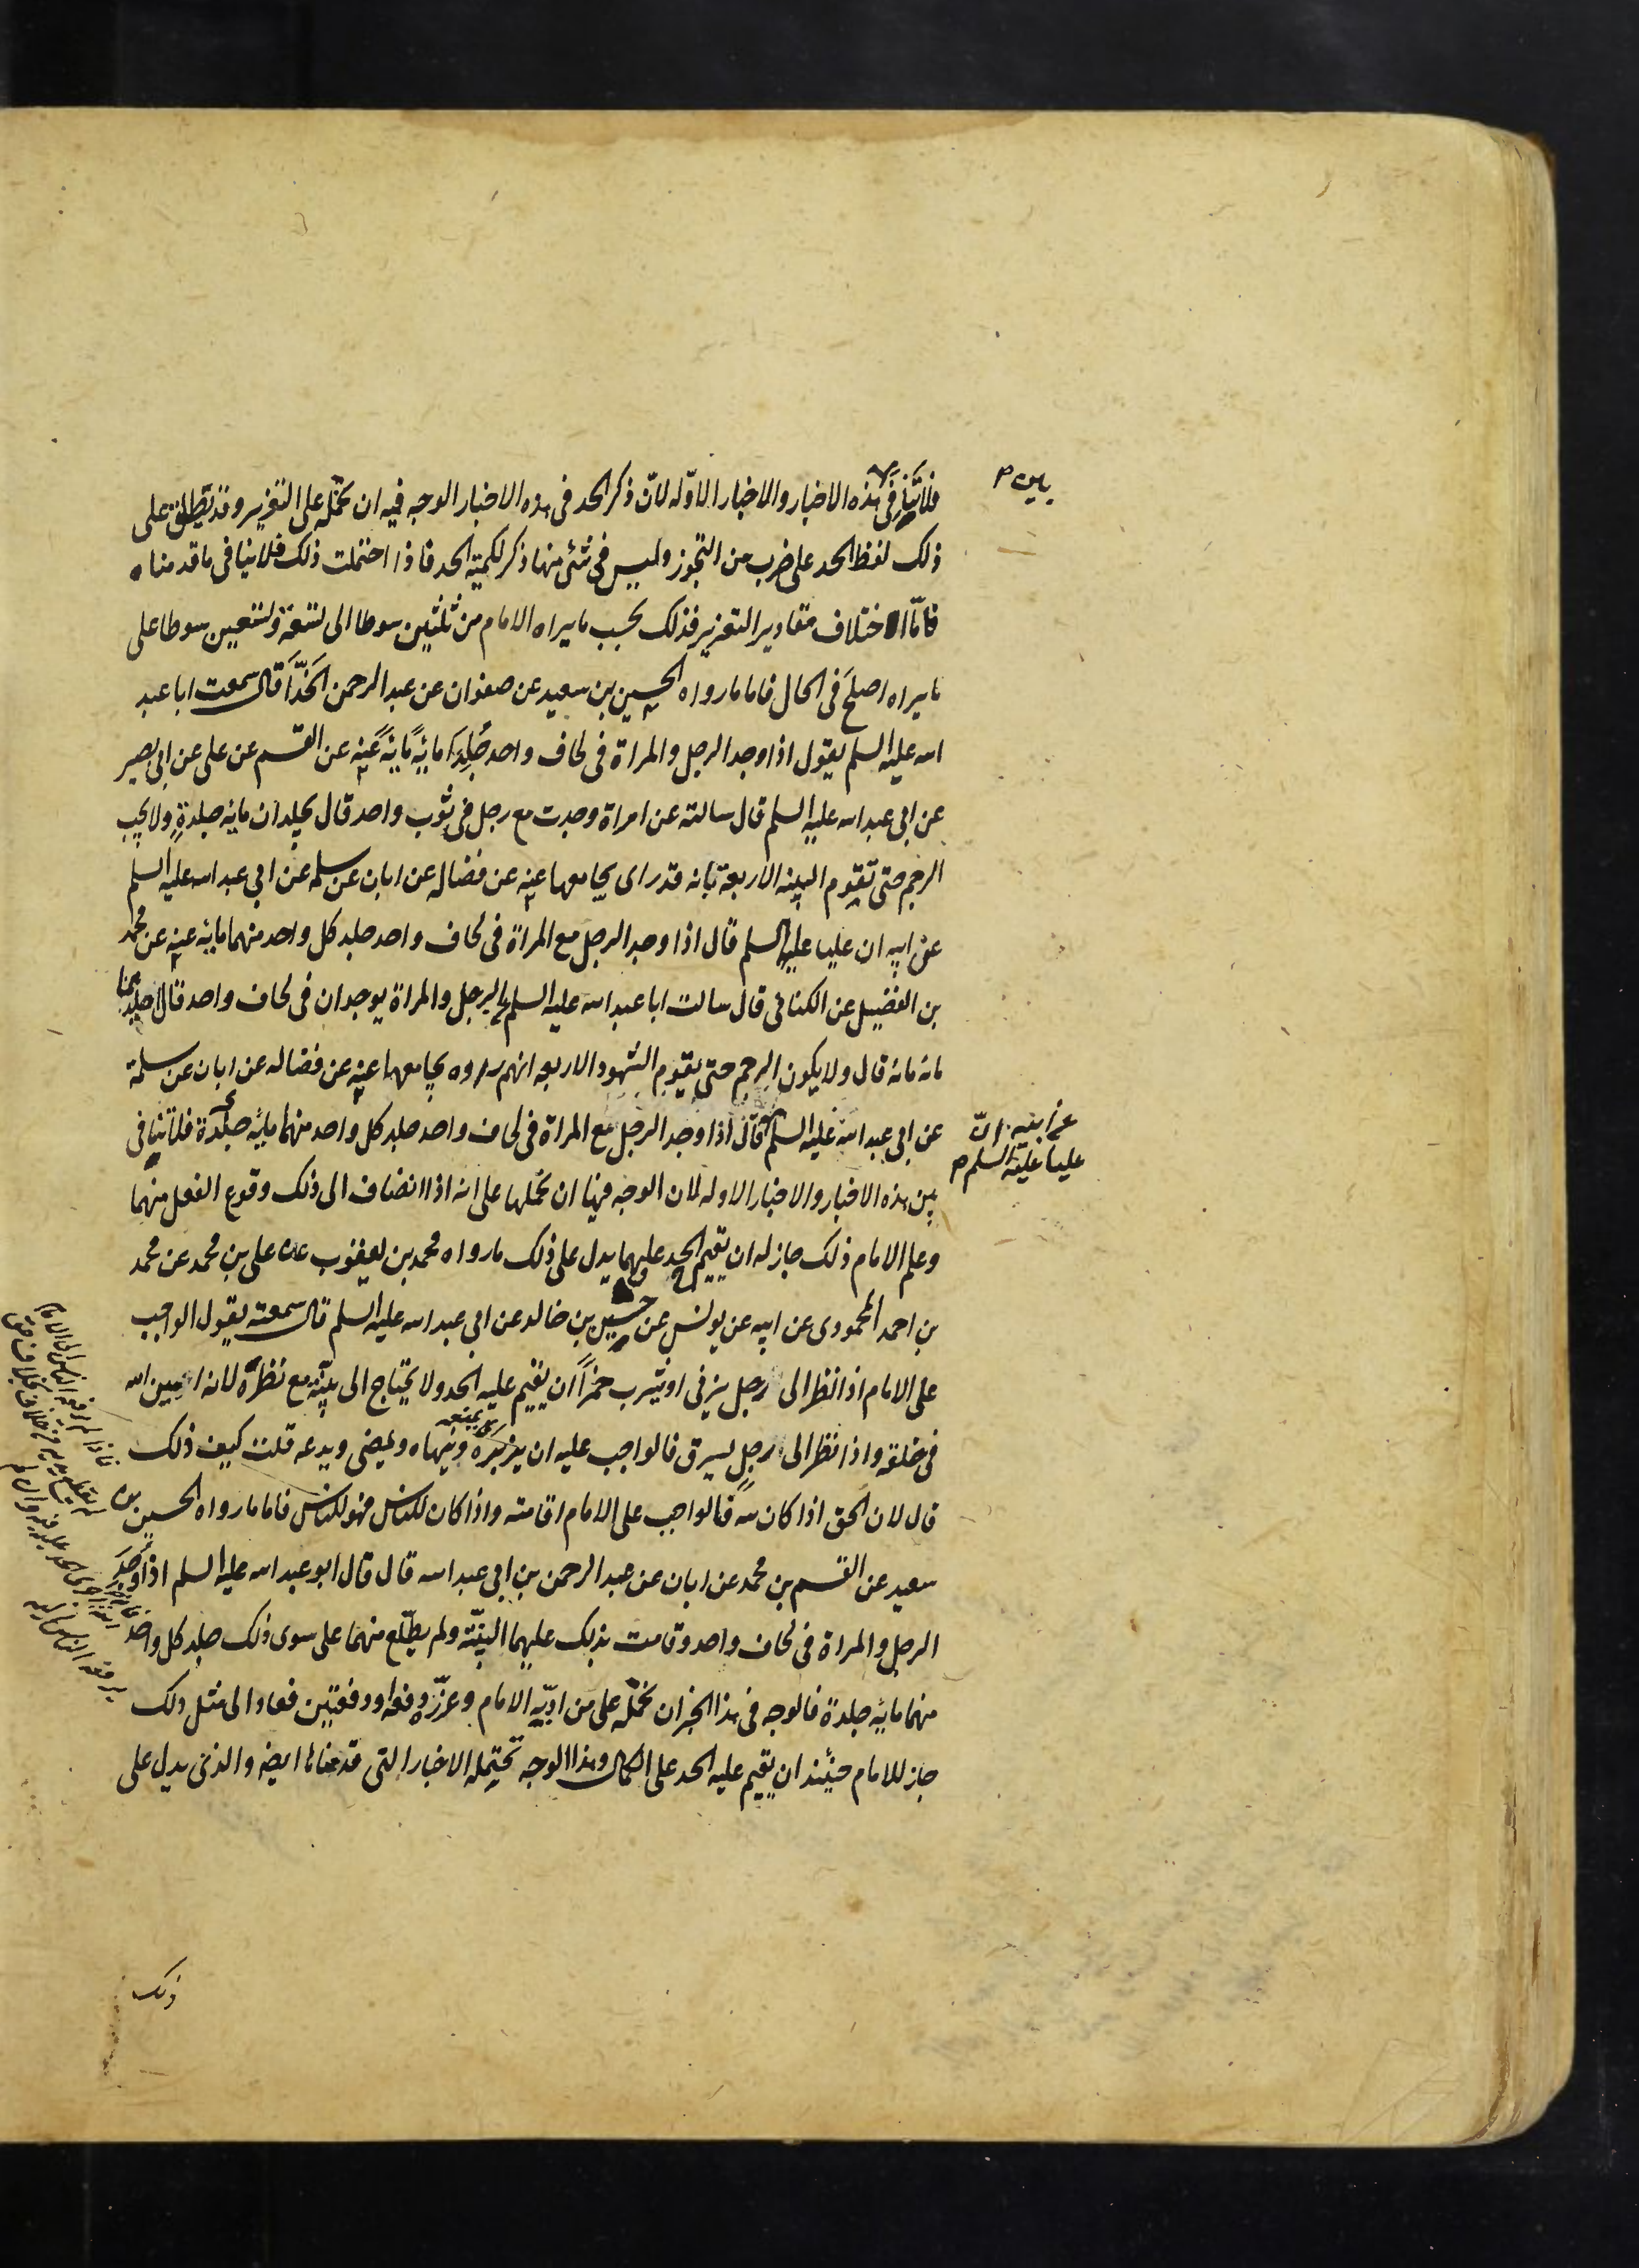 فلا تنافى هذه الاخبار والاخبار الاوله لانّ ذكر الحد فى هذه الاخبار الوجه فيه ان نحمله على التعزير وقد يطلق على
بين
ذلك لفظ الحد على ضرب من التجوز وليس فى شئ منها ذكر لكمية الحد فاذا احتملت ذلك فلا ينافى ما قدمناه
فامّا اختلاف مقادير التعزير فذلك بحسب ما يراه الامام من ثلثين سوطا الى تسعة وتسعين سوطا على
ما يراه اصلح فى الحال فاما ما رواه الحسين بن سعيد عن صفوان عن عبد الرحمن الحذّاء قال سمعت ابا عبد
الله عليه السلم يقول اذا وجد الرجل والمراة فى لحاف واحد جلدا مائة مائة عنه عن القسم عن على عن ابى بصير
عن ابى عبد الله عليه السلم قال سالته عن امراة وجدت مع رجل فى ثوب واحد قال يجلدان مائة جلدة ولا يجب
الرجم حتى تقوم البينه الاربعة بانه قد راى يجامعها عنه عن فضاله عن ابان عن سلمه عن ابى عبد الله عليه السلم
عن ابيه ان عليا عليه السلم قال اذا وجد الرجل مع المراة فى لحاف واحد جلد كل واحد منهما مائة عنه عن محمد
بن الفضيل عن الكنانى قال سالت ابا عبد الله عليه السلم عن الرجل والمراة يوجدان فى لحاف واحد قال اجلدهما
مائة مائة قال ولا يكون الرجم حتى يقوم الشهود الاربعه انهم راوه يجامعها عنه عن فضاله عن ابان عن سلمة
عن ابى عبد الله عليه السلم قال اذا وجد الرجل مع المراة فى لحاف واحد جلد كل واحد منهما مائة جلدة فلا تنافى
عن ابيه انّ
عليا عليه السلم
بين هذه الاخبار والاخبار الاوله لان الوجه فيها ان نحملها على انه اذا انضاف الى ذلك وقوع الفعل منهما
وعلم الامام ذلك جاز له ان يقيم الحد عليهما يدل على ذلك ما رواه محمد بن يعقوب عن على بن محمد عن محمد
بن احمد المحمودى عن ابيه عن يونس عن حسين بن خالد عن ابى عبد الله عليه السلم قال سمعته يقول الواجب
على الامام اذا نظر الى رجل يزنى او يشرب خمراً ان يقيم عليه الحد ولا يحتاج الى بيّنة مع نظره لانه امين الله
فى خلقه واذا نظر الى رجل يسرق فالواجب عليه ان يزبره وينهاه ويمضى ويدعه قلت كيف ذلك
قال لان الحق اذا كان لله فالواجب على الامام اقامته واذا كان للناس فهو للناس فاما ما رواه الحسين بن
سعيد عن القسم بن محمد عن ابان عن عبد الرحمن بن ابى عبد الله قال قال ابو عبد الله عليه السلم اذا وجد
الرجل والمراة فى لحاف واحد وقامت بذلك عليهما البيّنة ولم يطّلع منهما على سوى ذلك جلد كل واحد
منهما مائة جلدة فالوجه فى هذا الخبر ان نحمله على من ادّبه الامام وعزّره دفعه او دفعتين فعاد الى مثل ذلك
جاز للامام حينئذ ان يقيم عليه الحد على الكمال وهذا الوجه تحتمله الاخبار التى قدمناها ايضا والذى يدل على
ذلك